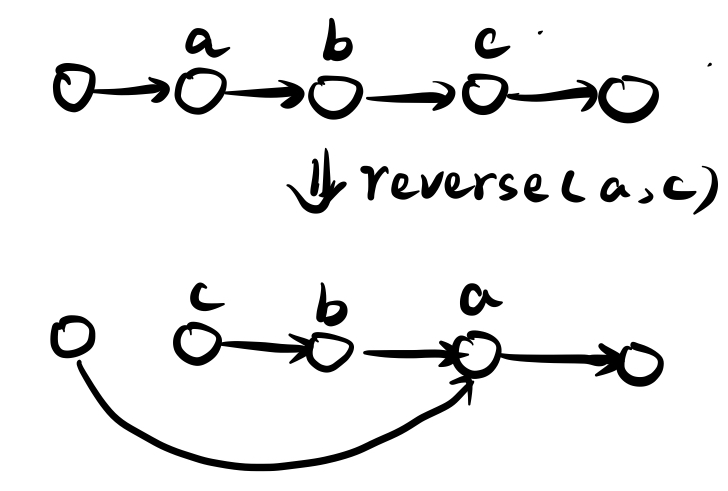 a b c
reverse(a,c)
c b a